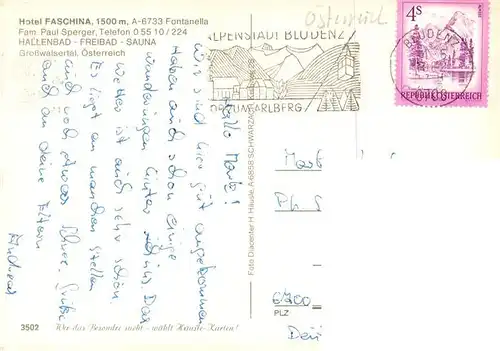 Hotel FASCHINA, 1500 m, A-6733 Fontanella
Fam. Paul Sperger, Telefon 0 55 10 / 224
HALLENBAD - FREIBAD - SAUNA
Großwalsertal, Österreich
Österreich
ALPENSTADT BLUDENZ
VORARLBERG
BLUDENZ
6700
4 S
REPUBLIK ÖSTERREICH
Hallo Mark!
Wir sind hier gut angekommen
Haben auch schon einige
Wanderungen hinter uns. Das
Wetter ist auch sehr schön.
Es liegt an manchen Stellen
auch noch etwas Schnee. Grüße
auch an deine Eltern
Andreas
Foto Diacenter H. Häusle, A 6858 SCHWARZACH
Mark
Ph. S
6700
PLZ
3502 Wer das Besondere sucht - wählt Häusle-Karten!